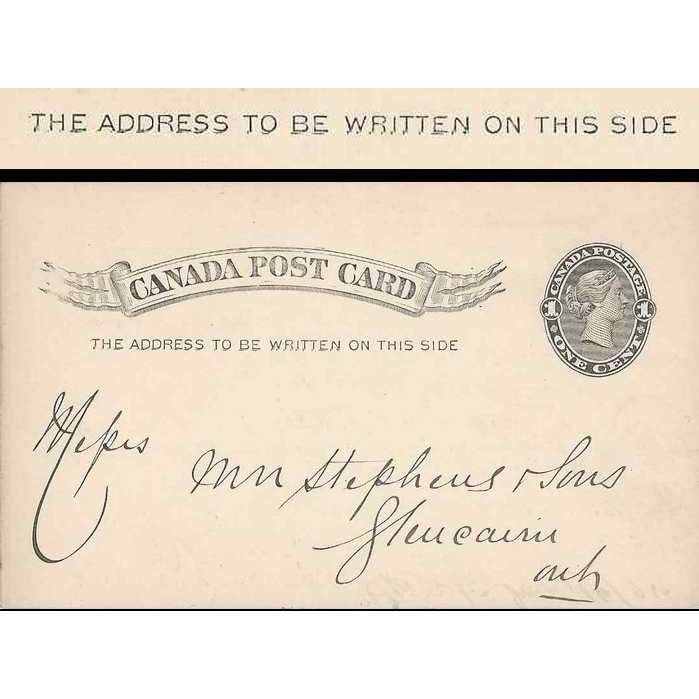 THE ADDRESS TO BE WRITTEN ON THIS SIDE
CANADA POST CARD
CANADA POSTAGE
1 1
ONE CENT
THE ADDRESS TO BE WRITTEN ON THIS SIDE
Messrs
Wm Stephens & Sons
Glencairn
Ont